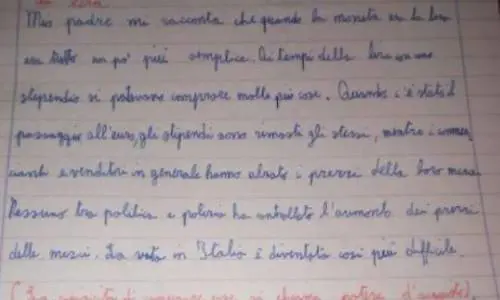 Mio padre mi racconta che quando la moneta era la lira
era tutto un po' più semplice. Ai tempi della lira con uno
stipendio si potevano comprare molte più cose. Quando c'è stato il
passaggio all'euro, gli stipendi sono rimasti gli stessi, mentre i commer
cianti e venditori in generale hanno alzato i prezzi della loro merce.
Nessuno tra politici e polizia ha controllato l'aumento dei prezzi
delle merci. La vita in Italia è diventata così più difficile.